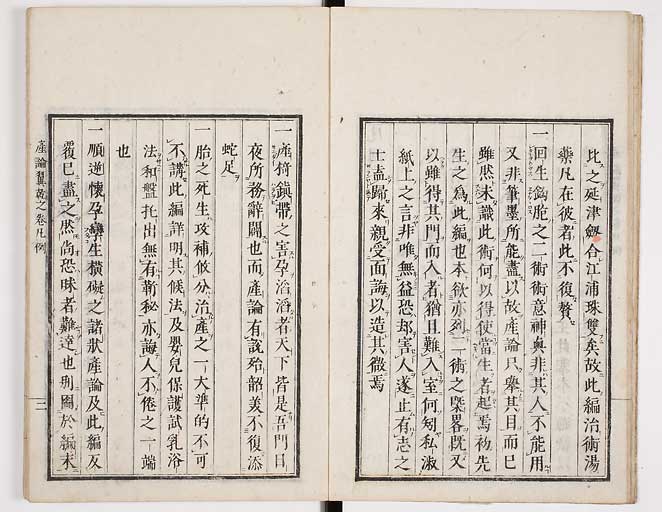 比之延津劔合江浦珠雙矣故此編治術湯
藥凡在彼者此不復贅
一回生鈎胞之二術術意神奧非其人不能用
又非筆墨所能盡以故產論只舉其目而已
雖然未識此術何以得使當生者起焉初先
生之爲此編也本欲亦列二術之槩畧既又
以雖得其門而入者猶且難入室何知私淑
紙上之言非唯無益恐却害人遂止有志之
士盍歸來親受面誨以造其微焉
一產椅鎭帶之害孕滔滔者天下皆是吾門日
夜所務辭闢也而產論有說殆韶美不復添
蛇足
一胎之死生攻補攸分治產之一大準的不可
不講此編詳明其候法及嬰兒保護試乳浴
法和盤托出無有靳秘亦誨人不倦之一端
也
一順逆懷孕孿生橫礙之諸狀產論及此編反
覆已盡之然尚恐昧者難達也別圖於編末
產論翼乾之卷凡例
三